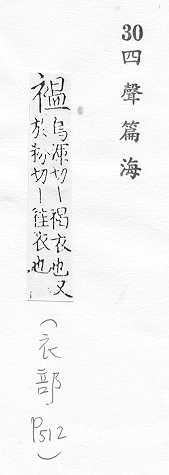 30四聲篇海
褞烏渾切丨褐衣也又
於粉切丨衣也
(衣部P512)